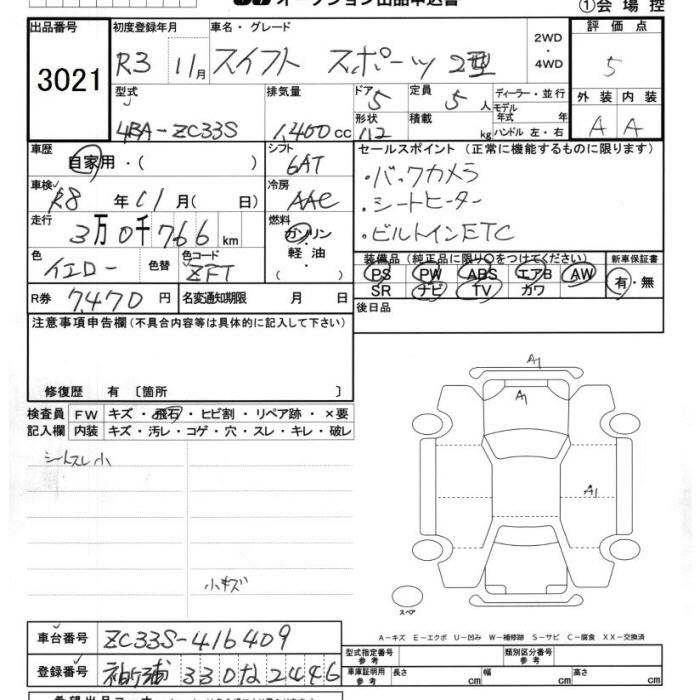 オークション出品申込書 ①会場控
出品番号 3021
初度登録年月 R3 11月
車名・グレード スイフト スポーツ 2型
2WD・4WD
評価点 5
型式 4BA-ZC33S
排気量 1,400cc
ドア 5 形状 112
定員 5人 積載 kg
ディーラー・並行
モデル年式 年
ハンドル 左・右
外装 内装
A A
車歴 自家用・( )
シフト 6AT
セールスポイント (正常に機能するものに限ります)
・バックカメラ
・シートヒーター
・ビルトインETC
車検 R8年11月( 日)
冷房 AAC
走行 3万0千766km
燃料 ガソリン・軽油・
色 イエロー 色替 色コード ZFT
装備品(純正品に限り○をつけてください) 新車保証書
PS PW ABS エアB AW 有・無
SR ナビ TV カワ
R券 7,470円 名変通知期限 月 日
後日品
注意事項申告欄(不具合内容等は具体的に記入して下さい)
修復歴 有 〔箇所 〕
検査員 FW キズ・飛石・ヒビ割・リペア跡・×要
記入欄 内装 キズ・汚レ・コゲ・穴・スレ・キレ・破レ
シートスレ小
小キズ
A1
A1
A1
スペア
A-キズ E-エクボ U-凹み W-補修跡 S-サビ C-腐食 XX-交換済
車台番号 ZC33S-416409
登録番号 袖ヶ浦 330 な 2446
型式指定番号 参考 類別区分番号 参考
車庫証明用 参考 長さ cm 幅 cm 高さ cm